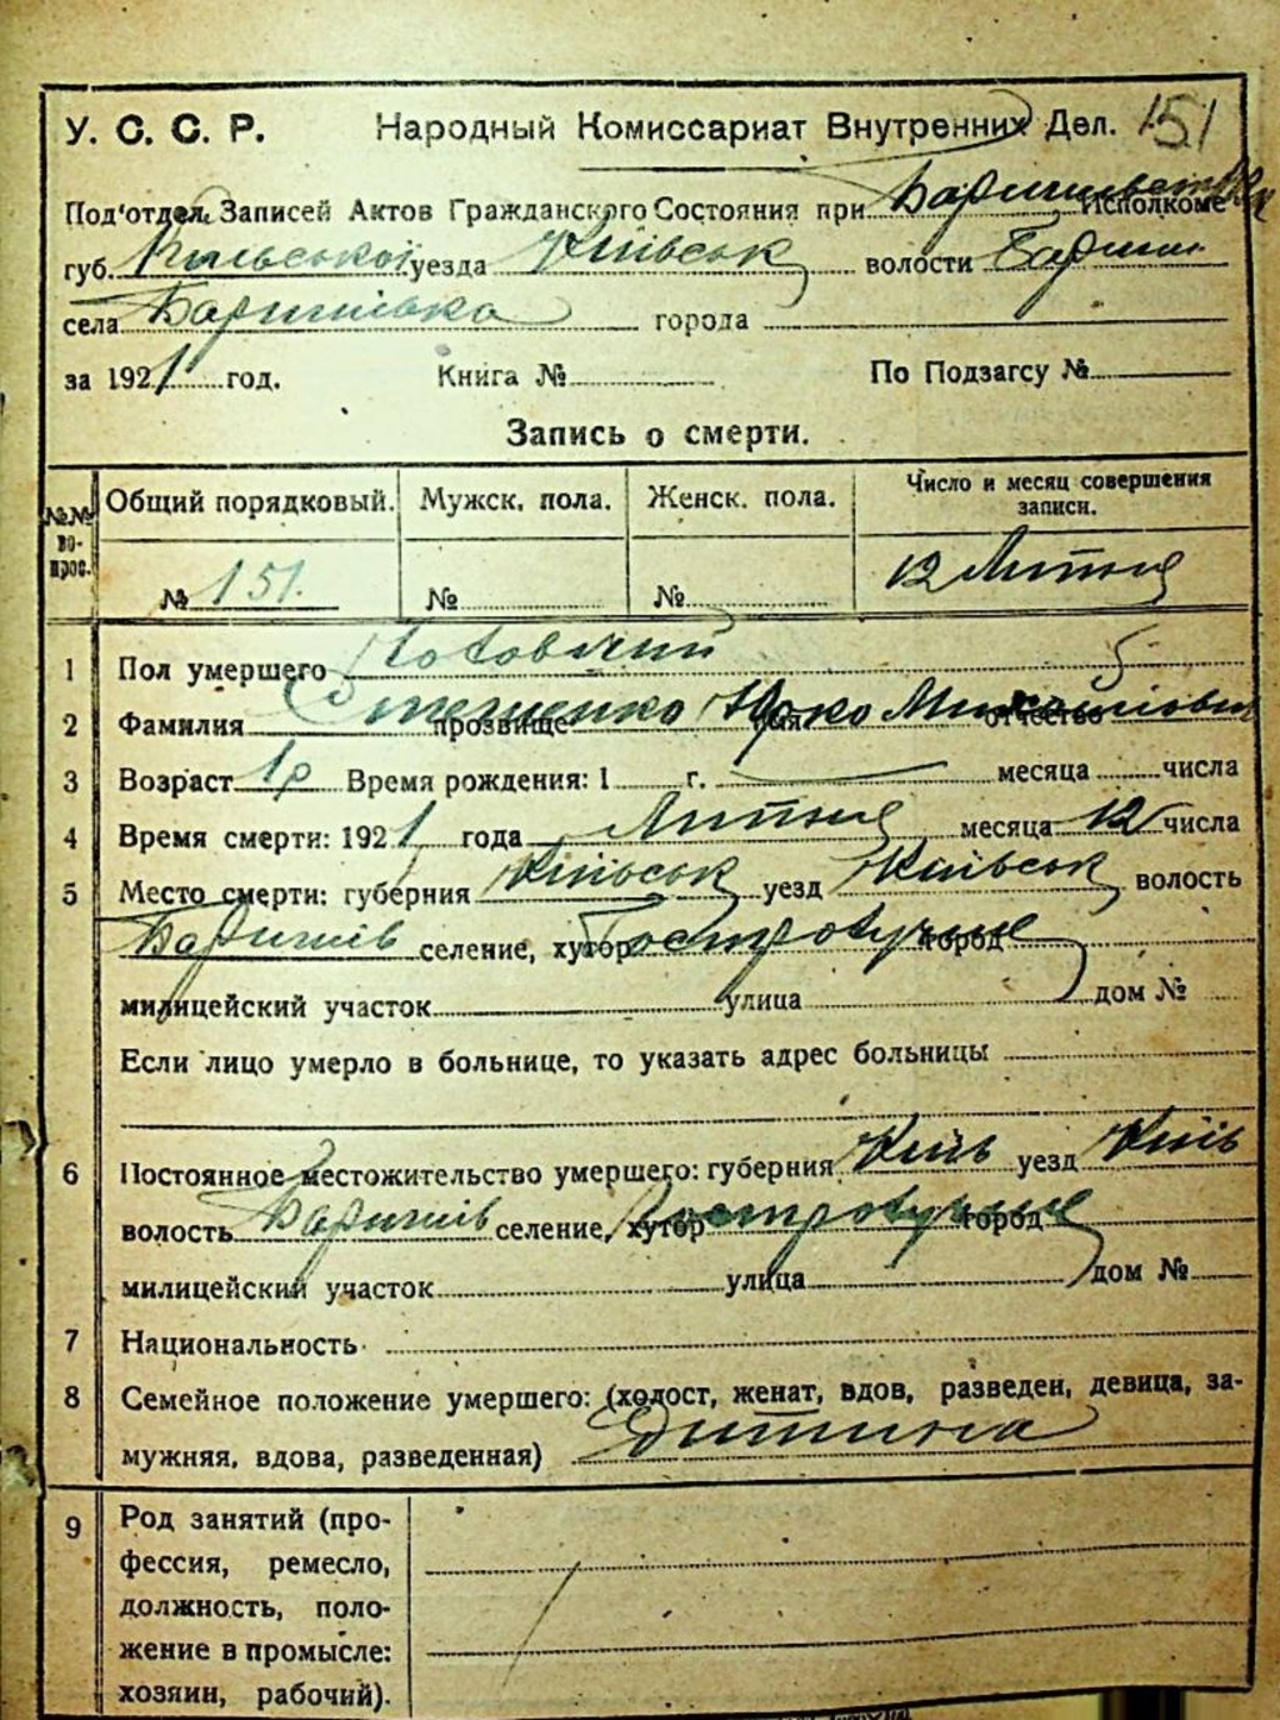 У. С. С. Р. Народный Комиссариат Внутренних Дел. 151
Под'отдел Записей Актов Гражданского Состояния при Исполкоме
губ. уезда Київськ волости Бариш
села Баришівка города
за 1921 год. Книга № По Подзагсу №
Запись о смерти.
№№ во-прос. Общий порядковый. Мужск. пола. Женск. пола. Число и месяц совершения записи.
№ 151. № № 12 Липня
1 Пол умершего Чоловічий
2 Фамилия Степенко прозвище имя отчество Михайлович
3 Возраст 1р Время рождения: 1 г. месяца числа
4 Время смерти: 1921 года Липня месяца 12 числа
5 Место смерти: губерния Київськ уезд Київськ волость
Баришів селение, хутор город
милицейский участок улица дом №
Если лицо умерло в больнице, то указать адрес больницы
6 Постоянное местожительство умершего: губерния Київ уезд Київ
волость Баришів селение, хутор город
милицейский участок улица дом №
7 Национальность
8 Семейное положение умершего: (холост, женат, вдов, разведен, девица, за-
мужняя, вдова, разведенная) Дитина
9 Род занятий (про-
фессия, ремесло,
должность, поло-
жение в промысле:
хозяин, рабочий).